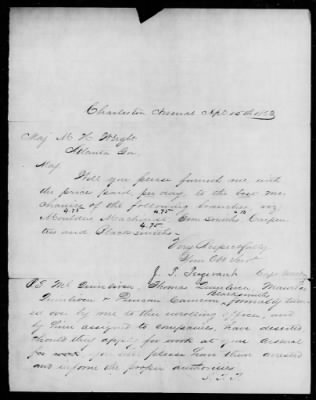 Charleston Arsenal Apl 15th 1863
Maj M. H. Wright
Atlanta Ga
Maj
Will you please furnish me with
the price paid per day to the best me
chanics of the following branches viz
4.75 4.75
Moulders Machinist Gun Smiths Carpen
4.75
ters and Blacksmiths
Very Respectfully
Your Obt Servt
J. T. Capt
PS Mr Dunlevor, Thomas Dunlevor, Maurice
Blacksmiths
Dunlevor & Duncan Cameron, formerly turn
ed over by me to the enrolling officer, and
by him assigned to companies, have deserted
should they apply for work at your Arsenal
for work you will please have them arrested
and inform the proper authorities.
J. T. T.